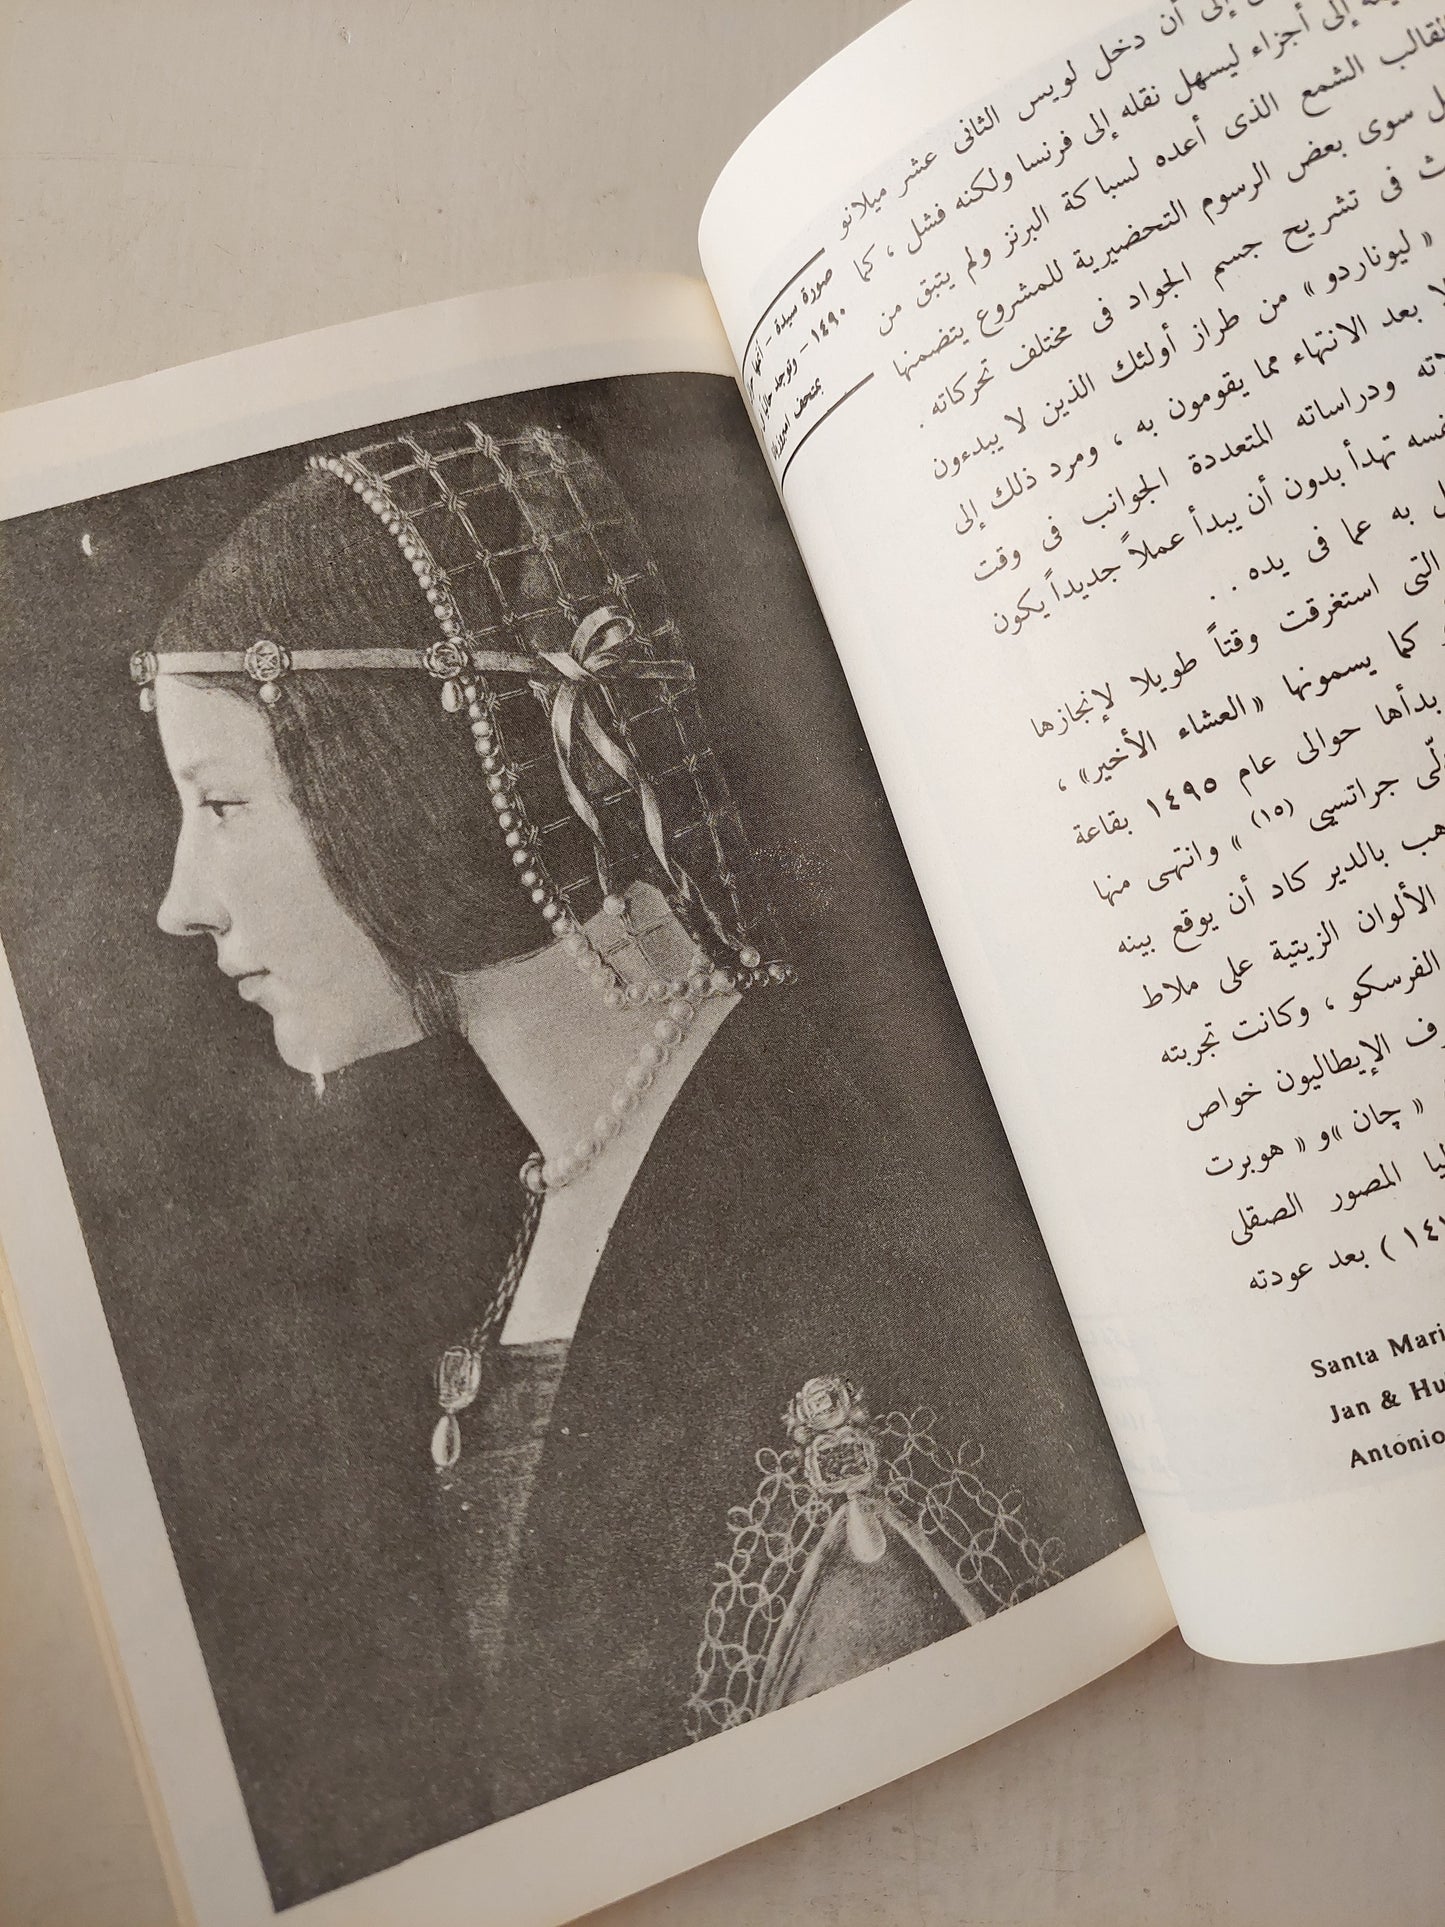 إلى أن دخل لويس الثانى عشر ميلانو
إلى أجزاء ليسهل نقله إلى فرنسا ولكنه فشل ، كما
القالب الشمع الذى أعده لسباكة البرنز ولم يتبق من
سوى بعض الرسوم التحضيرية للمشروع يتضمنها
فى تشريح جسم الجواد فى مختلف تحركاته .
« ليوناردو » من طراز أولئك الذين لا يبدءون
بعد الانتهاء مما يقومون به ، ومرد ذلك إلى
ودراساته المتعددة الجوانب فى وقت
تهدأ بدون أن يبدأ عملاً جديداً يكون
به عما فى يده . .
التى استغرقت وقتاً طويلا لإنجازها
كما يسمونها « العشاء الأخير » ،
بدأها حوالى عام ١٤٩٥ بقاعة
جراتسيى (١٥) » وانتهى منها
بالدير كاد أن يوقع بينه
الألوان الزيتية على ملاط
الفرسكو ، وكانت تجربته
الإيطاليون خواص
« چان » و « هوبرت
المصور الصقلى
) بعد عودته
Santa
Jan &
صورة سيدة -
١٤٩٠ - وتوجد
بمتحف